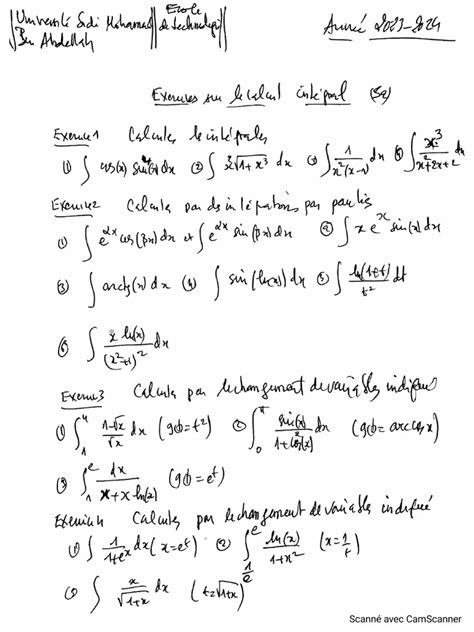 Université Sidi Mohamed Ben Abdellah || Ecole de technologie || Année 2023-2024
Exercices sur le calcul intégral (S2)
Exercice 1 Calculer les intégrales
① ∫ cos(x) sin⁴(x) dx ② ∫ x² √(1+x³) dx ③ ∫ 1/(x²(x-1)) dx ④ ∫ x³/(x²+2x+2) dx
Exercice 2 Calculer par des intégrations par parties
① ∫ e^{αx} cos(βx) dx et ∫ e^{αx} sin(βx) dx ② ∫ x e^x sin(x) dx
③ ∫ arctg(x) dx ④ ∫ sin(ln(x)) dx ⑤ ∫ ln(1+t)/t² dt
⑥ ∫ x ln(x)/(x²+1)² dx
Exercice 3 Calculer par le changement de variables indiqué
① ∫₁⁴ (1-√x)/√x dx (φ=t²) ② ∫₀^π sin(x)/(1+cos²(x)) dx (φ=arccos x)
③ ∫₁^e dx/(x+x ln(x)) (φ=e^t)
Exercice 4 Calculer par le changement de variables indiqué
① ∫ 1/(1+e^x) dx (x=e^t) ② ∫_{1/e}^e ln(x)/(1+x²) (x=1/t)
∫ x/√(1+x) dx (t=√(1+x))
Scanné avec CamScanner